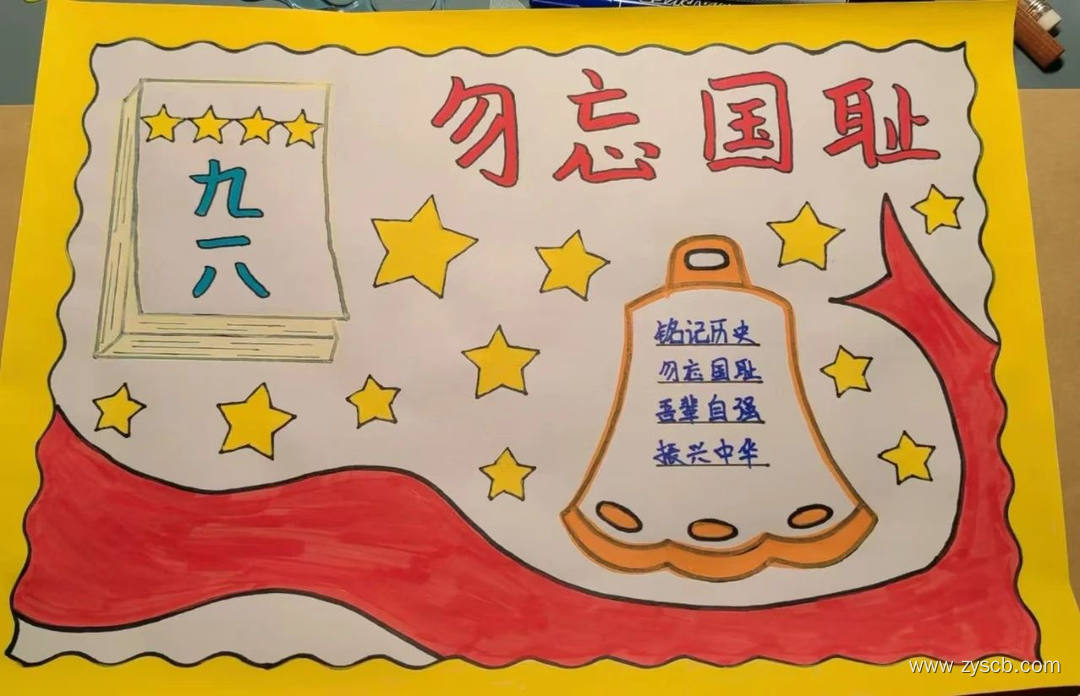 勿忘国耻
九一八
铭记历史
勿忘国耻
吾辈自强
振兴中华
www.zyscb.com